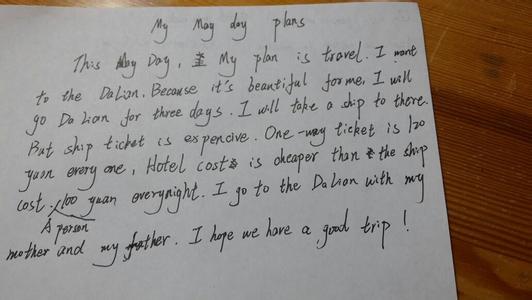 My May day plans
This May Day, My plan is travel. I want
to the DaLian. Because it's beautiful for me, I will
go DaLian for three days. I will take a ship to there.
But ship ticket is expencive. One-way ticket is 120
yuan every one, Hotel cost is cheaper than the ship
cost. 100 yuan everynight. I go to the DaLian with my
A person
mother and my father. I hope we have a good trip!